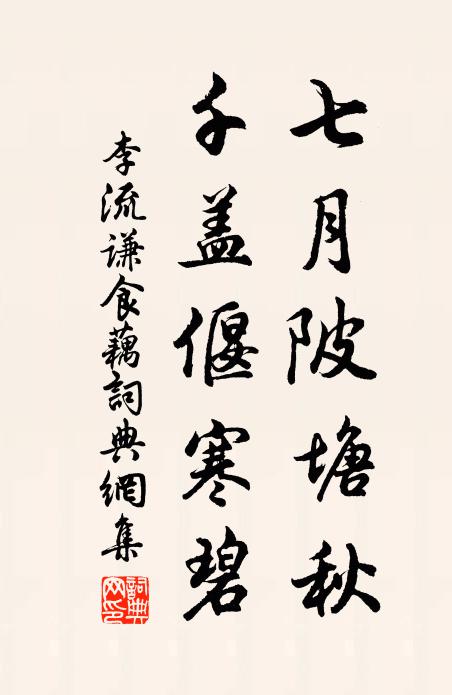 七月陂塘秋
千盖偃寒碧
李流谦食藕詞典網集
詞典网印